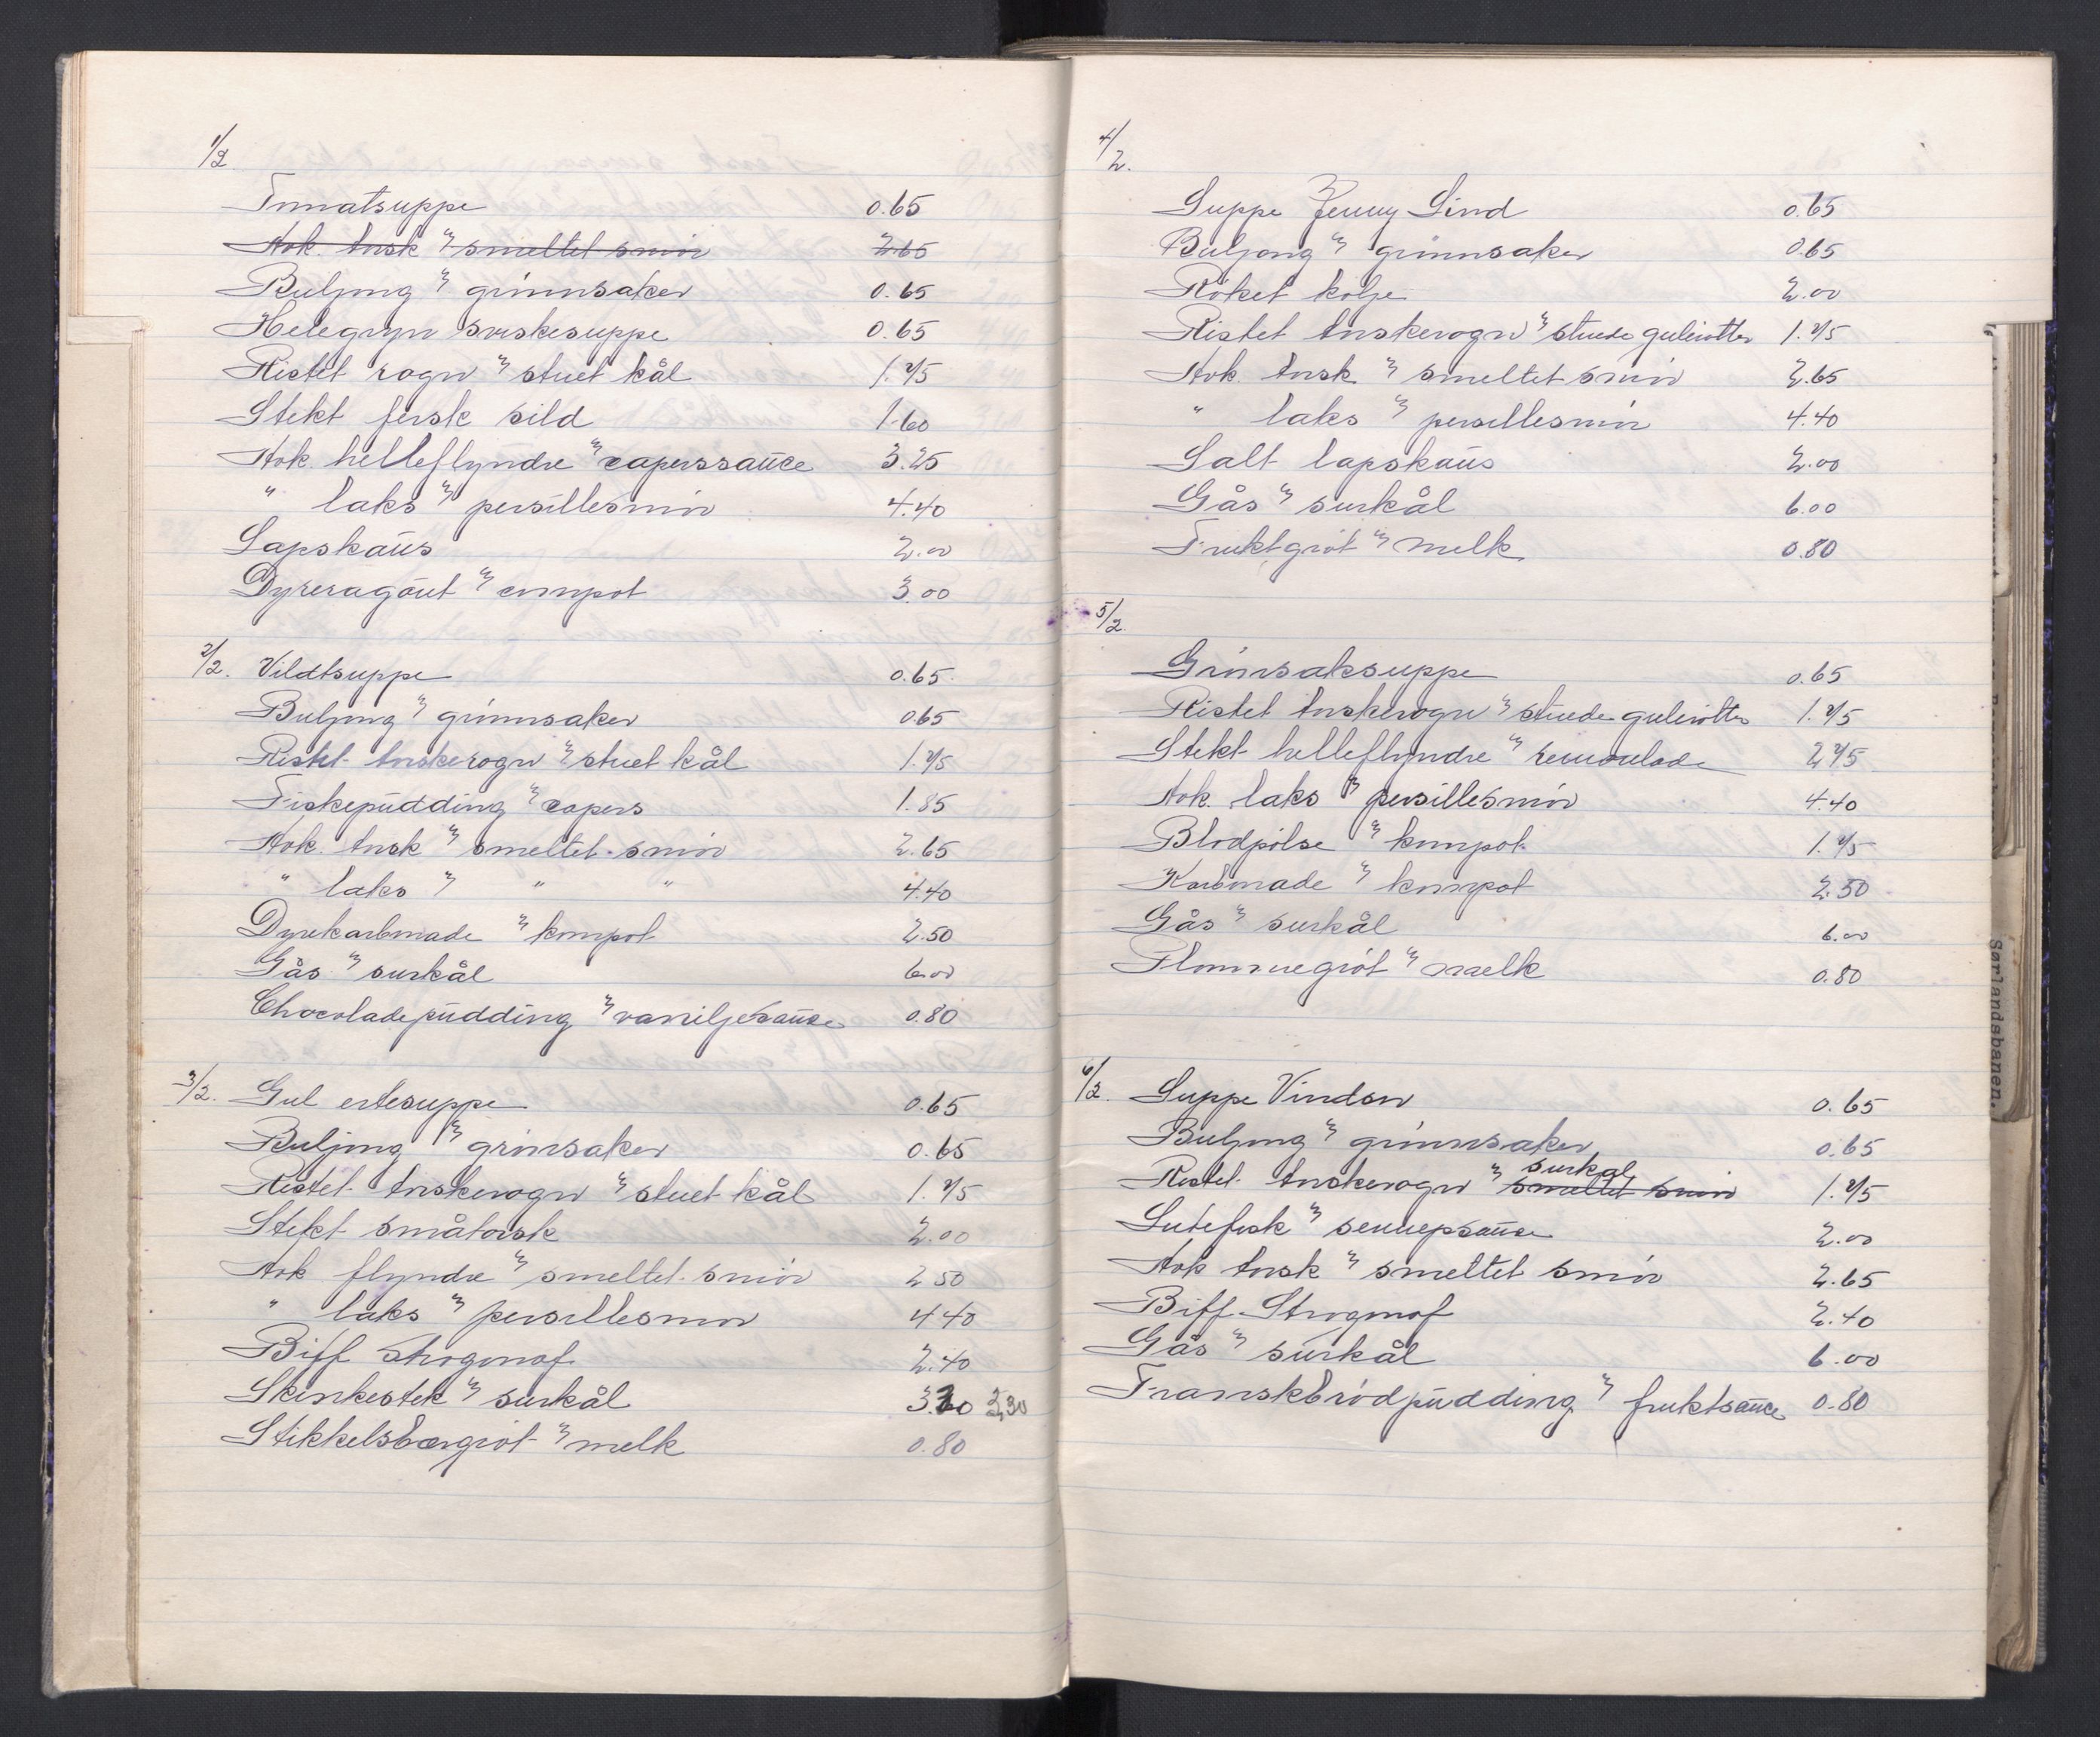 1/2
Tomatsuppe 0.65
Kok. torsk m/ smeltet smör 2.65
Buljong m/ grönnsaker 0.65
Helegryn sviskesuppe 0.65
Ristet rogn m/ stuet kål 1.75
Stekt fersk sild 1.60
Kok. helleflyndre m/ caperssauce 3.25
" laks m/ persillesmör 4.40
Lapskaus 2.00
Dyreragout m/ compot 3.00
2/2. Vildtsuppe 0.65
Buljong m/ grönnsaker 0.65
Ristet torskerogn m/ stuet kål 1.75
Fiskepudding m/ capers 1.85
Kok. torsk m/ smeltet smör 2.65
" laks m/ " " 4.40
Dyrekarbonade m/ kompot 2.50
Gås m/ surkål 6.00
Chocoladepudding m/ vaniljesause 0.80
3/2. Gul ertesuppe 0.65
Buljong m/ grönsaker 0.65
Ristet torskerogn m/ stuet kål 1.75
Stekt småtorsk 2.00
Kok flyndre m/ smeltet smör 2.50
" laks m/ persillesmör 4.40
Biff Strogonof 2.40
Skinkestek m/ surkål 3.30 3,30
Stikkelsbærgröt m/ melk 0.80
4/2.
Suppe Jenny Lind 0.65
Buljong m/ grönnsaker 0.65
Röket kolje 2.00
Ristet torskerogn m/ stuede gulerötter 1.75
Kok. torsk m/ smeltet smör 2.65
" laks m/ persillesmör 4.40
Salt lapskaus 2.00
Gås m/ surkål 6.00
Fruktgröt m/ melk 0.80
5/2.
Grönsaksuppe 0.65
Ristet torskerogn m/ stuede gulerötter 1.75
Stekt helleflyndre m/ remoulade 2.75
Kok. laks m/ persillesmör 4.40
Blodpölse m/ kompot 1.75
Karbonade m/ kompot 2.50
Gås m/ surkål 6.00
Plommegröt m/ melk 0.80
6/2. Suppe Vindsor 0.65
Buljong m/ grönnsaker 0.65
Ristet torskerogn m/ smeltet smör surkål 1.75
Lutefisk m/ sennepsause 2.00
Kok torsk m/ smeltet smör 2.65
Biff Strogonof 2.40
Gås m/ surkål 6.00
Franskbrödpudding m/ fruktsauce 0.80
Sørlandsbanen.